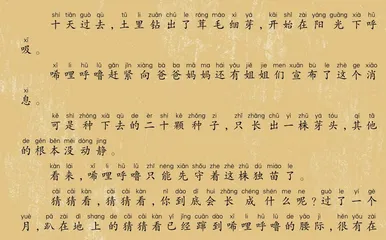 shí tiān guò qù tǔ lǐ zuān chū le róng máo xì yá kāi shǐ zài yáng guāng xià hū
十天过去，土里钻出了茸毛细芽，开始在阳光下呼
xī
吸。
xī lī hū lū gǎn jǐn xiàng bà ba mā ma hái yǒu jiě jie men xuān bù le zhè ge xiāo
唏哩呼噜赶紧向爸爸妈妈还有姐姐们宣布了这个消
xi
息。
kě shì zhòng xià qù de èr shí kē zhǒng zi zhǐ zhǎng chū yì zhū yá tóu qí tā
可是种下去的二十颗种子，只长出一株芽头，其他
de gēn běn méi dòng jing
的根本没动静。
kàn lái xī lī hū lū zhǐ néng xiān shǒu zhe zhè zhū dú miáo le
看来，唏哩呼噜只能先守着这株独苗了。
cāi cāi kàn cāi cāi kàn nǐ dào dǐ huì zhǎng chéng shén me ne guò le yí ge
猜猜看，猜猜看，你到底会长成什么呢？过了一个
yuè pā zài dì shang de cāi cāi kàn yǐ jīng cuān dào xī lī hū lū de yāo jì hěn yǒu zài
月，趴在地上的猜猜看已经蹿到唏哩呼噜的腰际，很有在